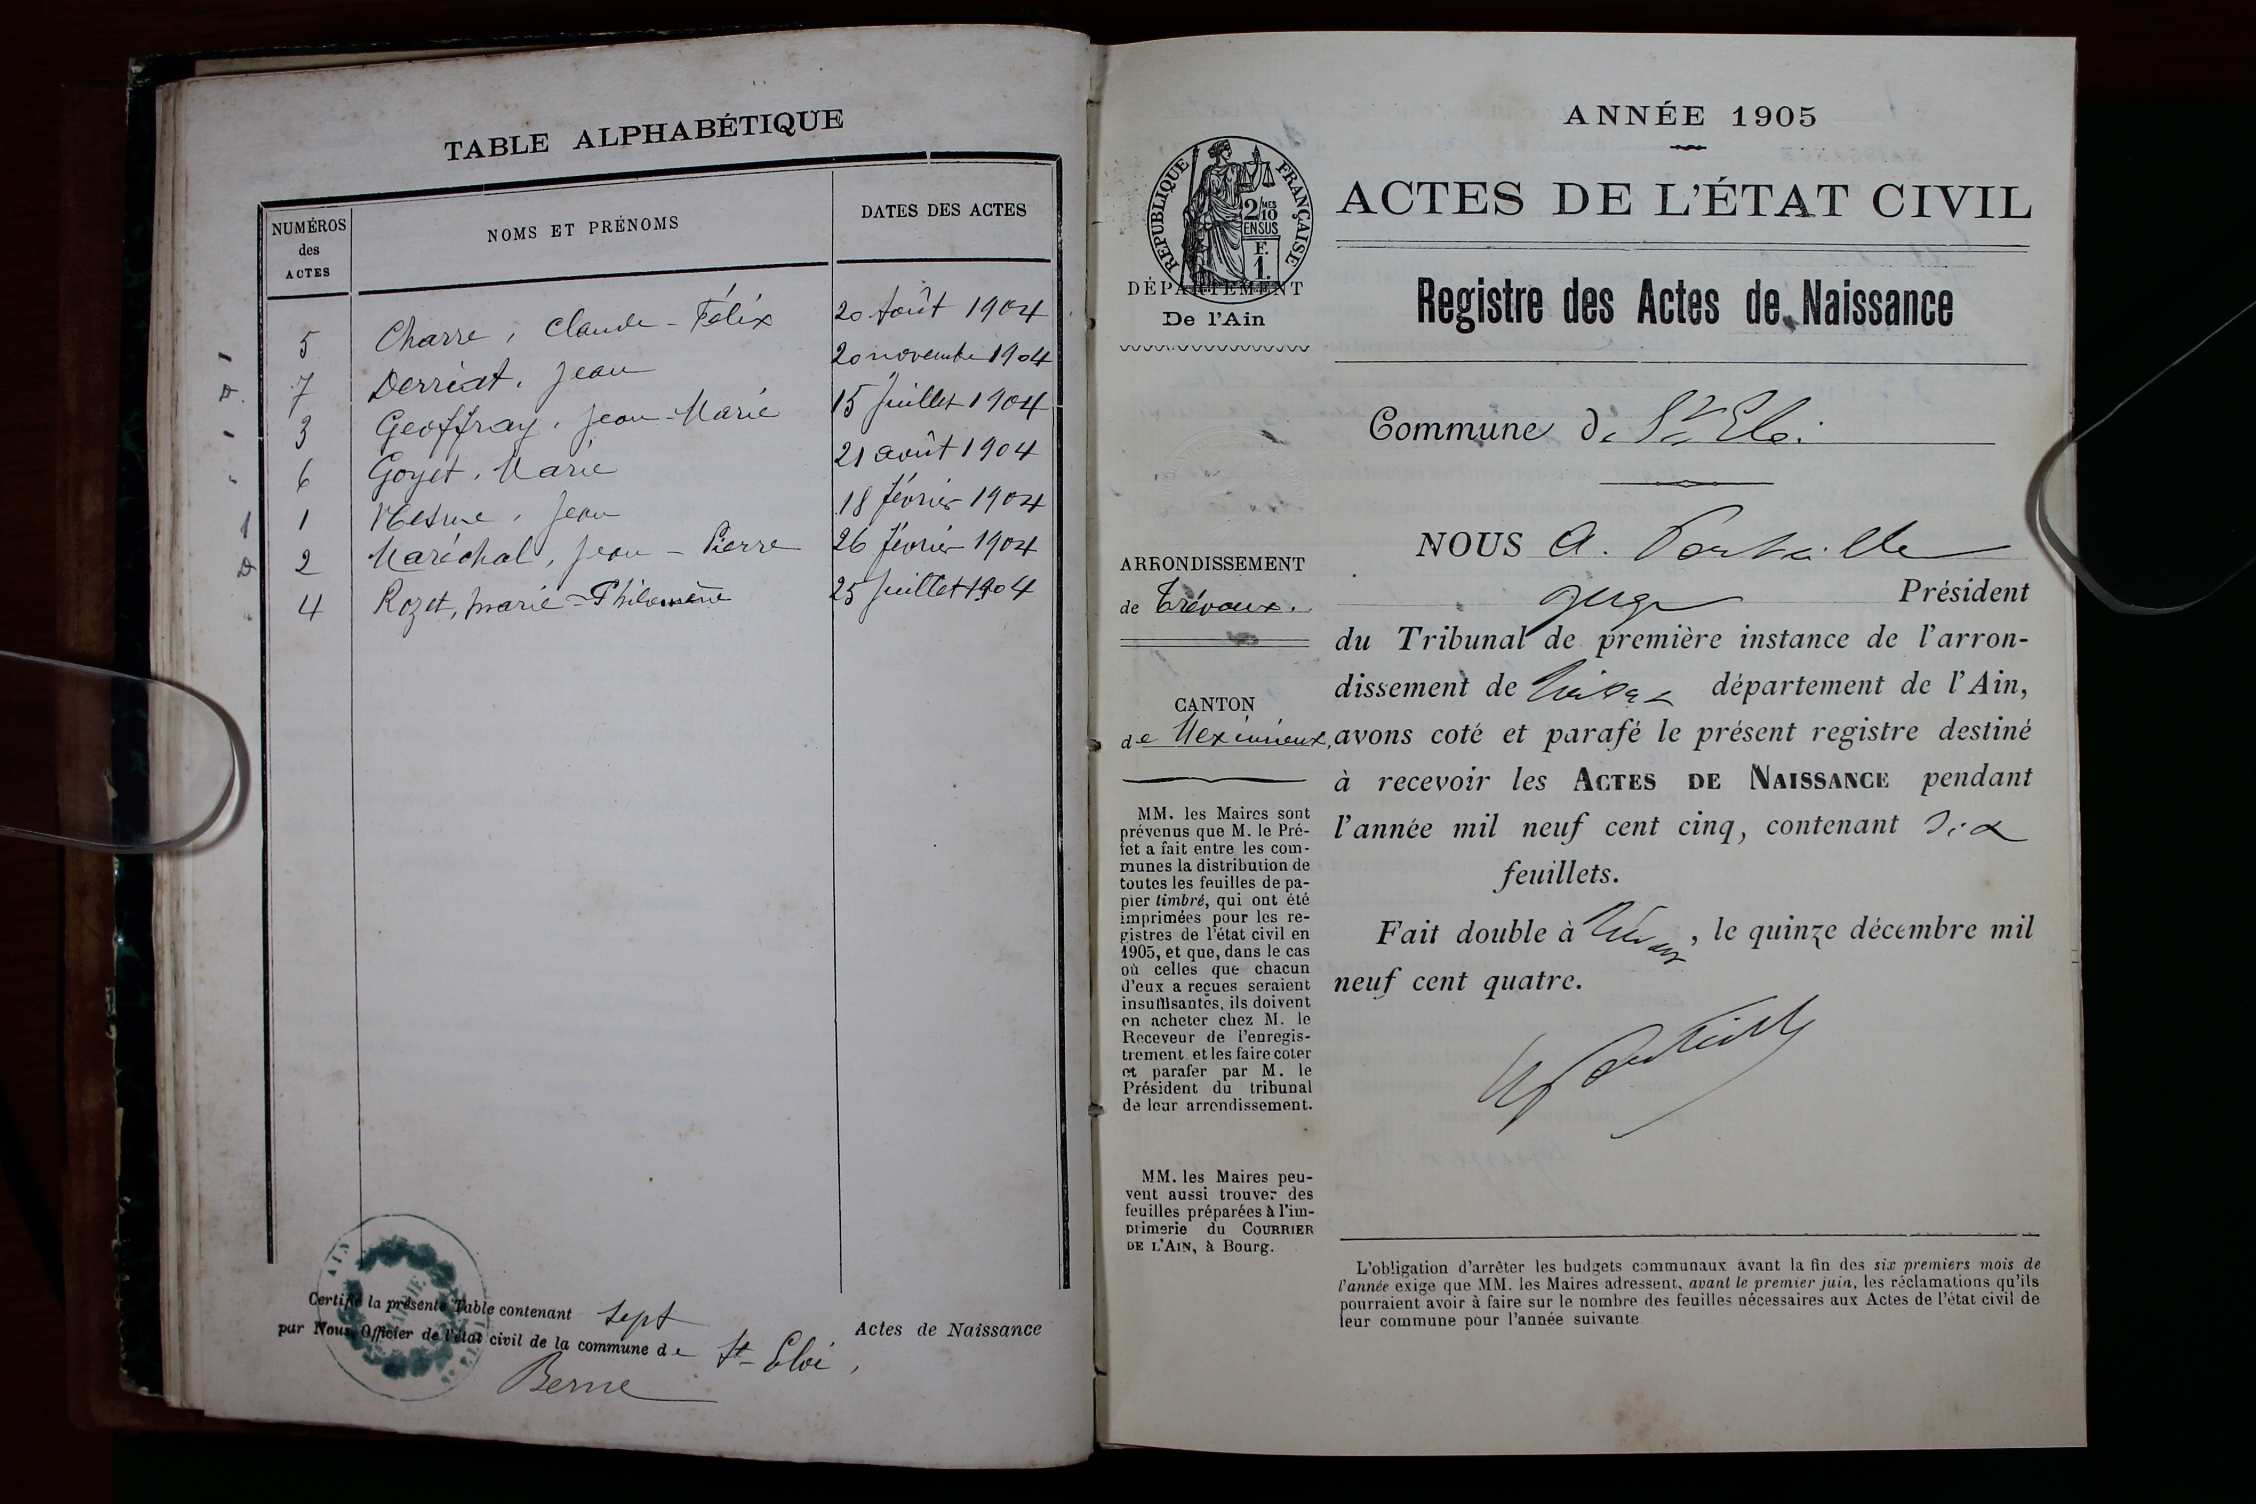 TABLE ALPHABÉTIQUE
NUMÉROS des ACTES
NOMS ET PRÉNOMS
DATES DES ACTES
5 Charre, Claude-Félix 20 Août 1904
7 Derriat, Jean 20 novembre 1904
3 Geoffray, Jean-Marie 15 Juillet 1904
6 Goyet, Marie 21 août 1904
1 Jean 18 février 1904
2 Maréchal, Jean-Pierre 26 février 1904
4 Rozet, Marie-Philomène 25 Juillet 1904
Certifié la présente Table contenant sept Actes de Naissance
par Nous, Officier de l'état civil de la commune de St-Eloi,
Berne
ANNÉE 1905
RÉPUBLIQUE FRANÇAISE
2/10 MES
EN SUS
F.
1.
ACTES DE L'ÉTAT CIVIL
DÉPARTEMENT
De l'Ain
Registre des Actes de Naissance
Commune de St Eloi
ARRONDISSEMENT
de Trévoux.
CANTON
de Meximieux,
MM. les Maires sont
prévenus que M. le Pré-
fet a fait entre les com-
munes la distribution de
toutes les feuilles de pa-
pier timbré, qui ont été
imprimées pour les re-
gistres de l'état civil en
1905, et que, dans le cas
où celles que chacun
d'eux a reçues seraient
insuffisantes, ils doivent
en acheter chez M. le
Receveur de l'enregis-
trement et les faire coter
et parafer par M. le
Président du tribunal
de leur arrondissement.
MM. les Maires peu-
vent aussi trouver des
feuilles préparées à l'im-
primerie du COURRIER
DE L'AIN, à Bourg.
NOUS A.
juge Président
du Tribunal de première instance de l'arron-
dissement de Trévoux département de l'Ain,
avons coté et parafé le présent registre destiné
à recevoir les ACTES DE NAISSANCE pendant
l'année mil neuf cent cinq, contenant six
feuillets.
Fait double à Trévoux, le quinze décembre mil
neuf cent quatre.
L'obligation d'arrêter les budgets communaux avant la fin des six premiers mois de
l'année exige que MM. les Maires adressent, avant le premier juin, les réclamations qu'ils
pourraient avoir à faire sur le nombre des feuilles nécessaires aux Actes de l'état civil de
leur commune pour l'année suivante